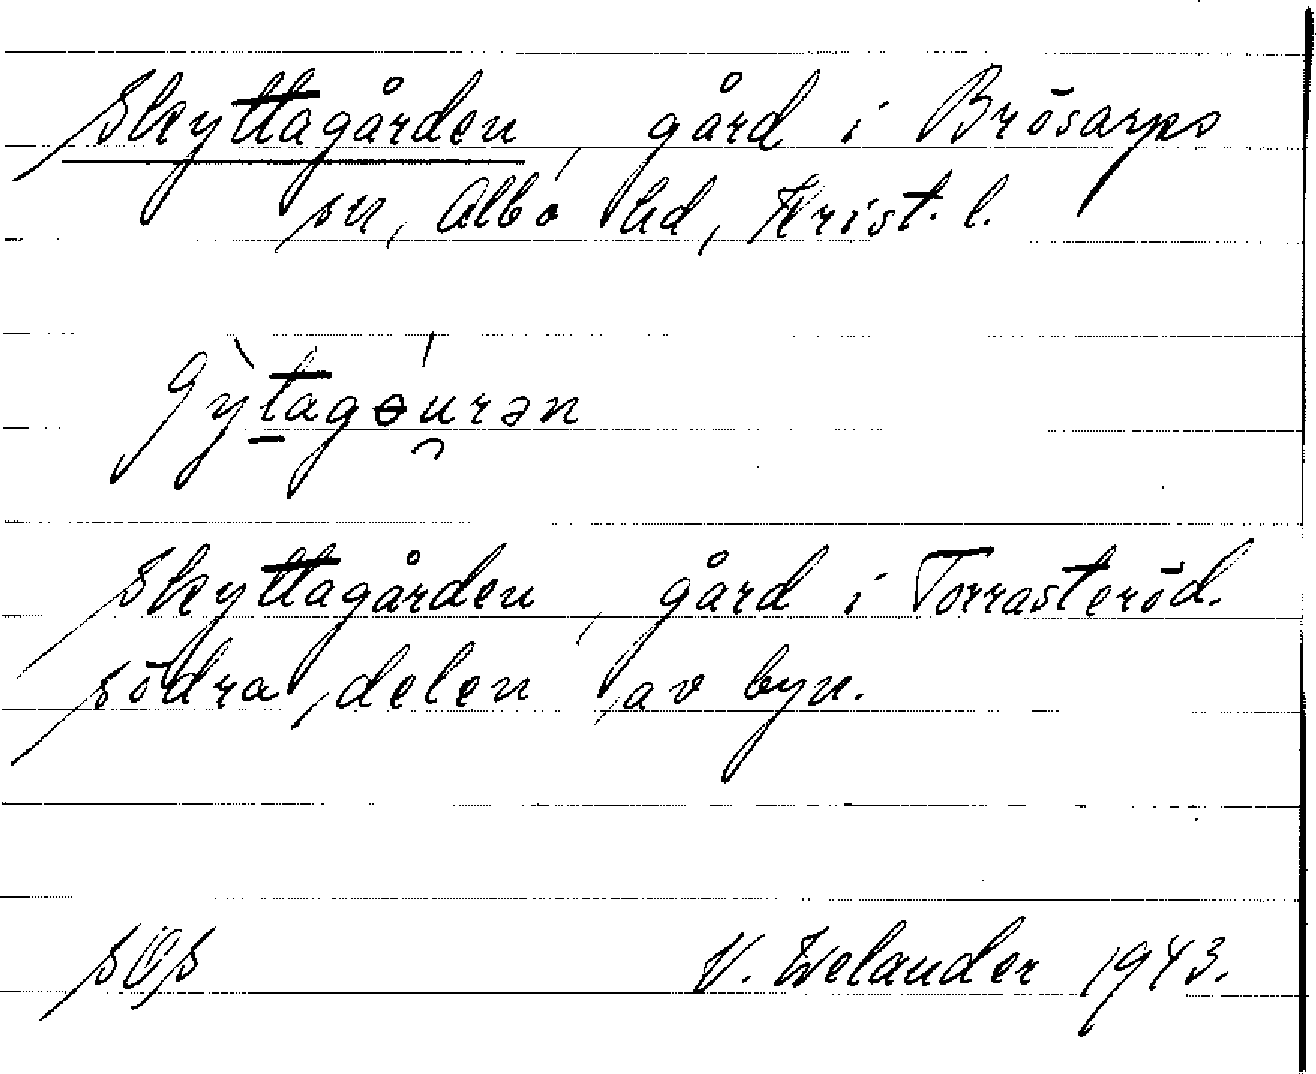 Skyttagården, gård i Brösarps
sn, Albo hd, Krist. l.
Skyttagården, gård i Torrasteröd.
södra delen av byn.
V. Welander 1943.